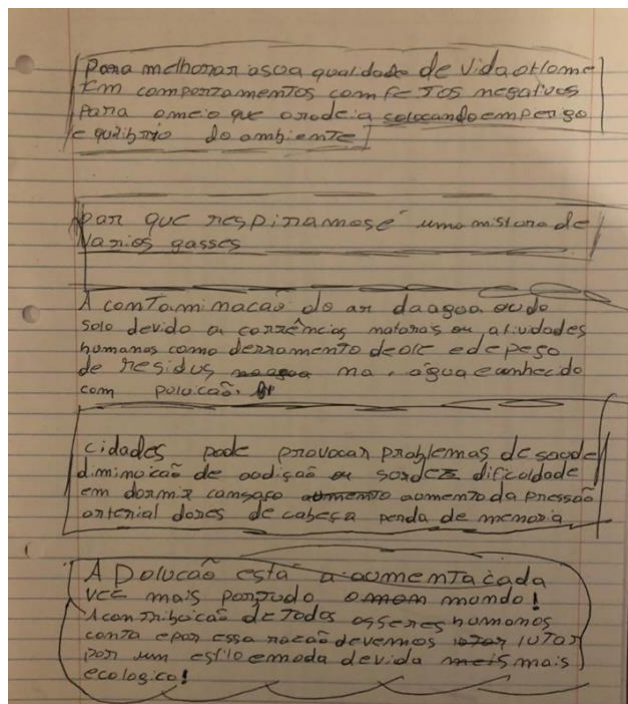 Para melhorar asua qualidade de vida o Home
Em comportamentos com fetos negativos
para o meio que arodeia colocando em perigo
equilibrio do ambiente
par que respiramos é uma mistura de
varios gasses
A contaminacaõ do ar da agoa ou do
solo devido a corrências natoras ou atividades
humanos como derramento de ole e depeso
de residus na água e conhecido
com poluicaõ.
cidades pode provocar problemas de saode
diminoicaõ de aodiçaõ ou sordez dificuldade
em dormir cansaço aomento da pressão
arterial dores de cabeça perda de memoria
A Polucaõ está a aomenta cada
vez mais portudo o mundo!
A contriboicaõ de todos os seres homanos
conta e por essa racaõ devemos lutar
por um estilo e moda de vida mais
ecologico!